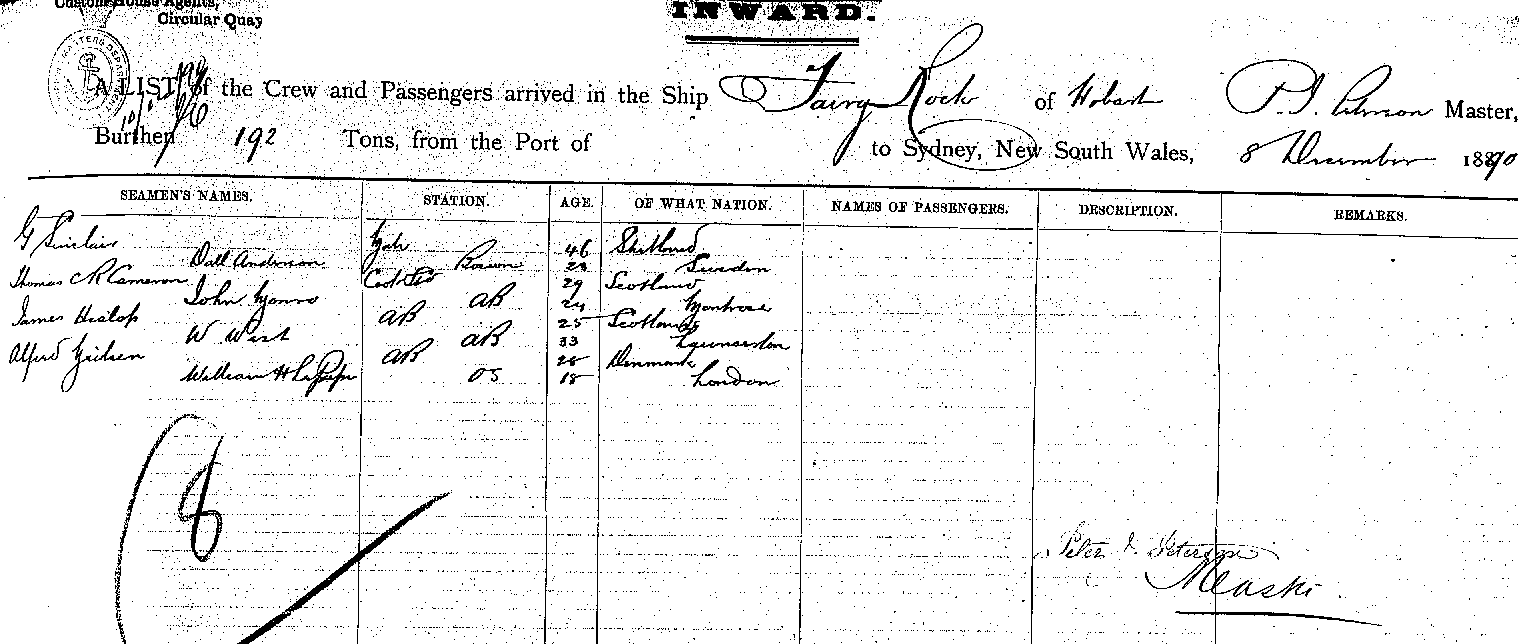 Custom House Agents,
Circular Quay
INWARD.
A LIST of the Crew and Passengers arrived in the Ship Fairy Rock of Hobart P. J. Master,
Burthen 192 Tons, from the Port of to Sydney, New South Wales, 8 December 1890
SEAMEN'S NAMES. STATION. AGE. OF WHAT NATION. NAMES OF PASSENGERS. DESCRIPTION. REMARKS.
G Sinclair 46 Shetland
Anderson Bosun 23 Sweden
Thomas Cameron Cook 29 Scotland
John Munro AB 24 Montrose
James Hislop AB 25 Scotland
W West AB 33 Launceston
Alfred AB 28 Denmark
William H OS 18 London
8
Peter